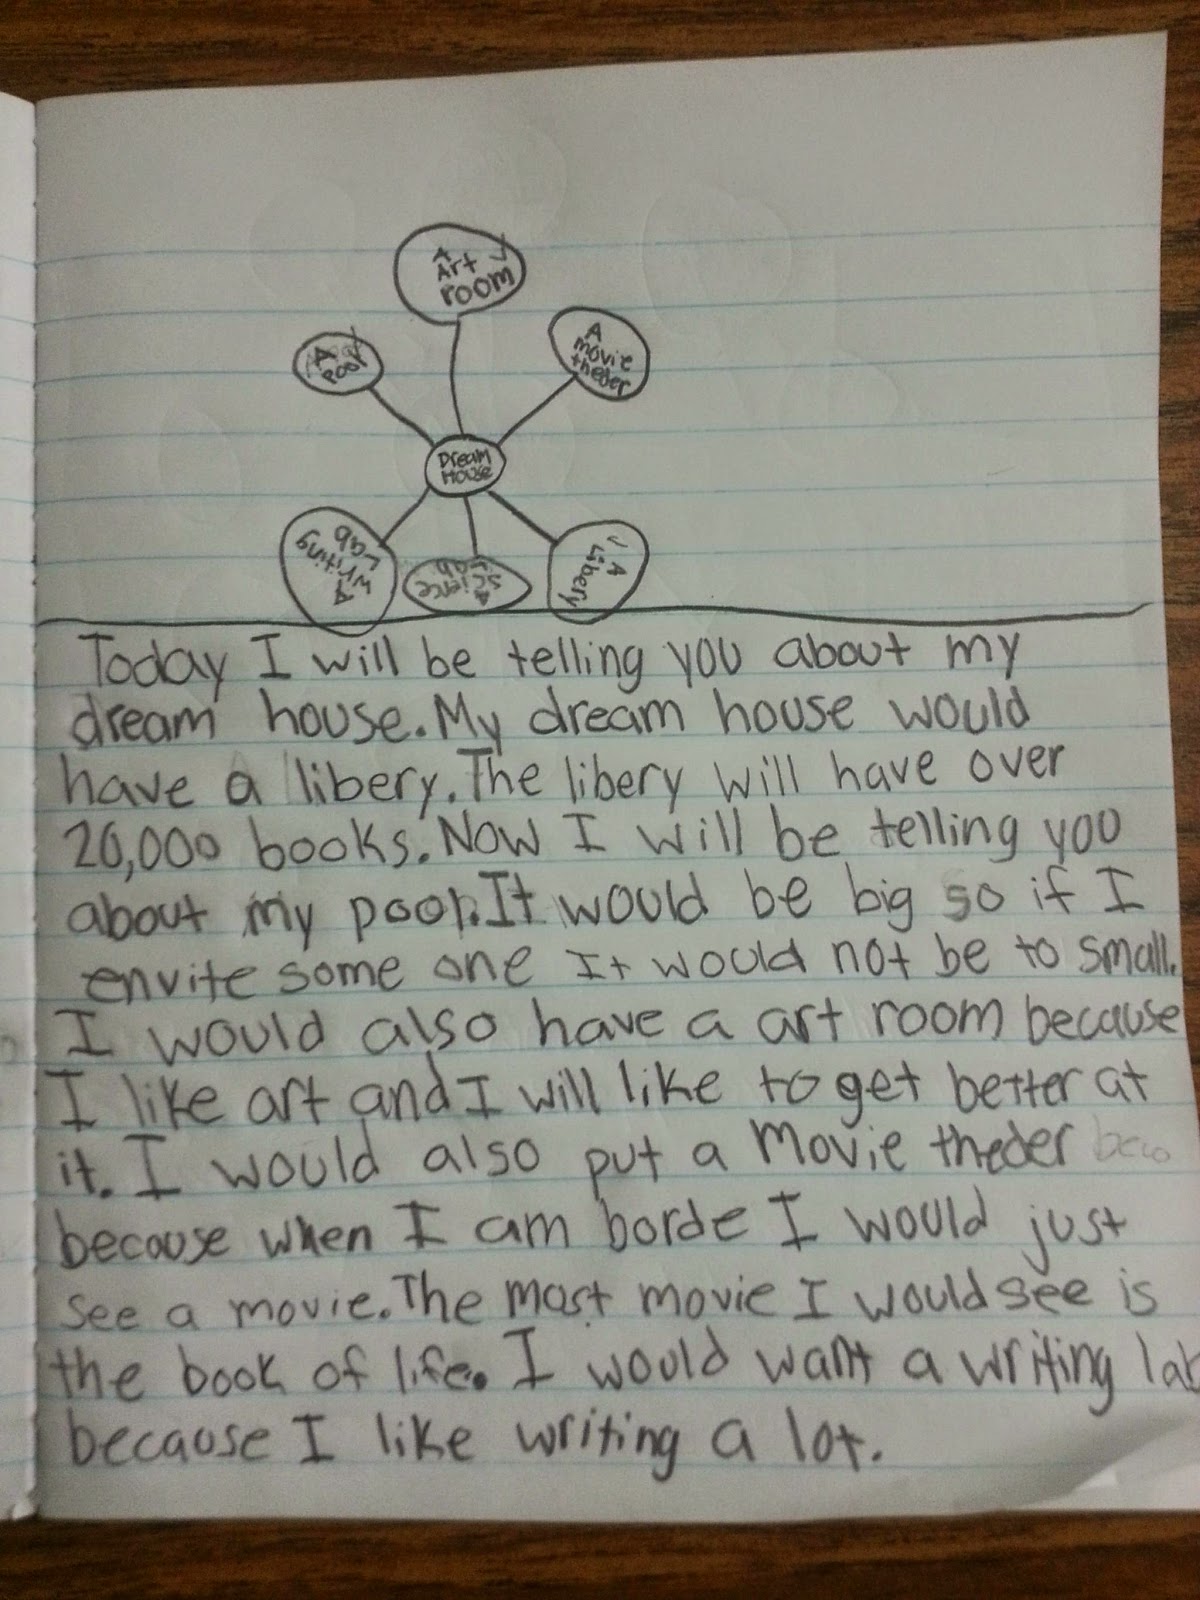 A
Art
room
A
Pool
A
movie
theder
Dream
House
A
writing
Lab
A
science
Lab
A
Libery
Today I will be telling you about my
dream house. My dream house would
have a libery. The libery will have over
20,000 books. Now I will be telling you
about my pool. It would be big so if I
envite some one It would not be to small.
I would also have a art room because
I like art and I will like to get better at
it. I would also put a movie theder
because when I am borde I would just
see a movie. The most movie I would see is
the book of life. I would want a writing lab
because I like writing a lot.